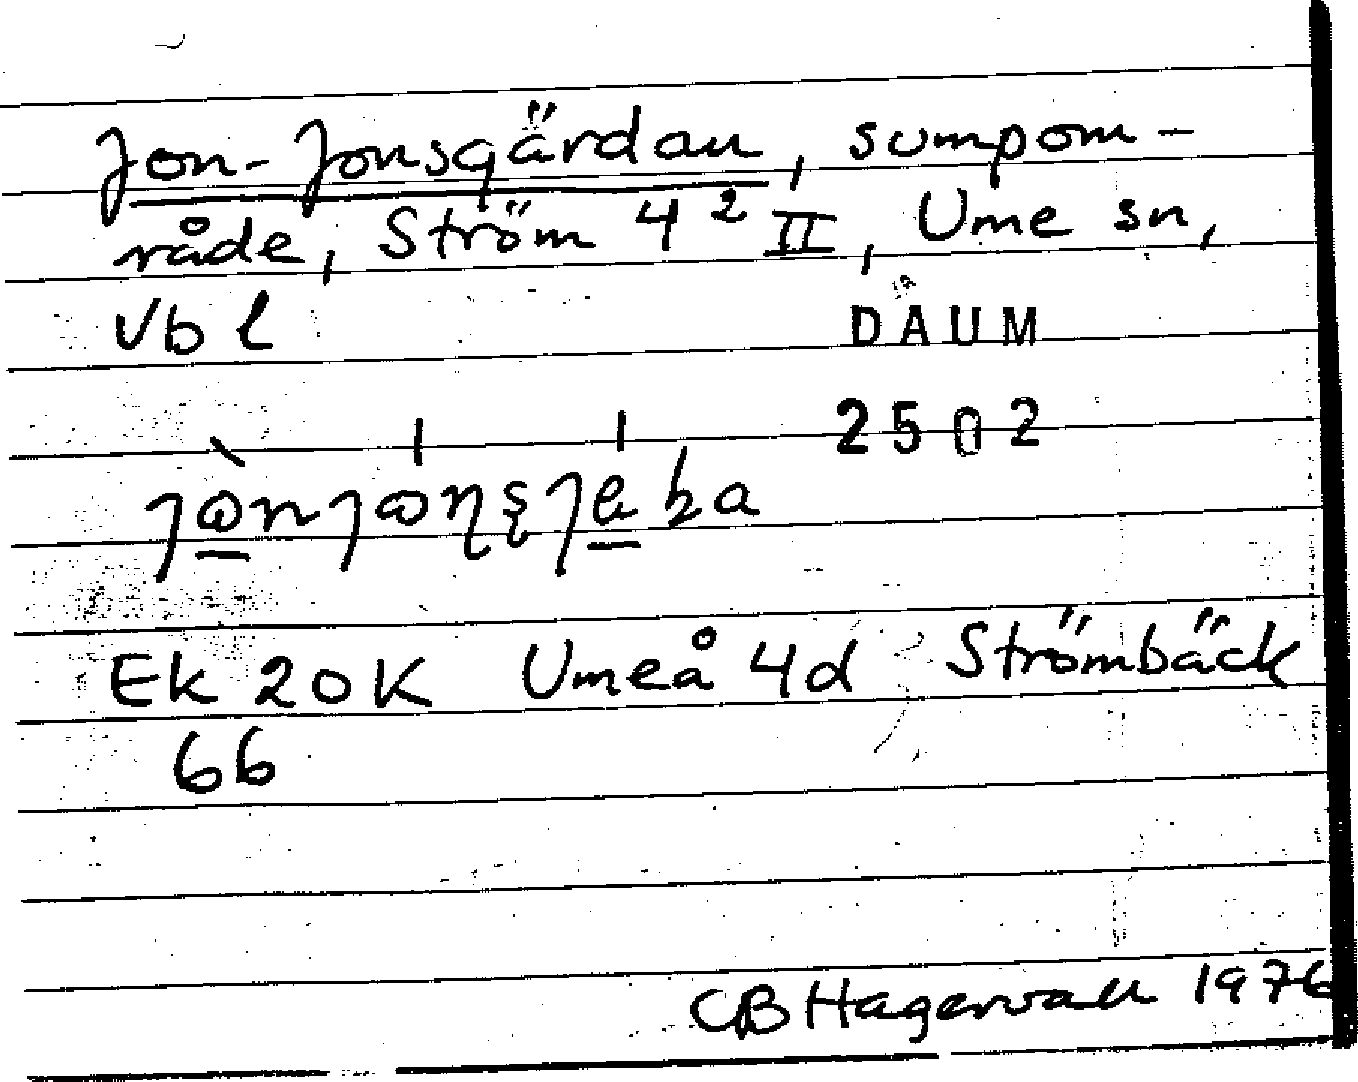 Jon-Jonsgärdan, sumpom-
råde, Ström 4 2 II, Ume sn,
Vbl
DAUM
2502
Ek 20K Umeå 4d Strömbäck
66
CB Hagervall 1976